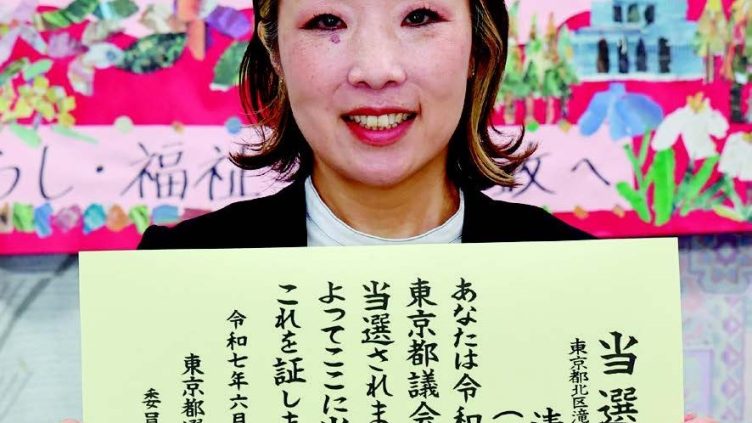 らし・福祉 へ
当選
東京都北区滝
あなたは令和
東京都議会
当選されま
よってここに当
これを証しま
令和七年六月
東京都選
委員